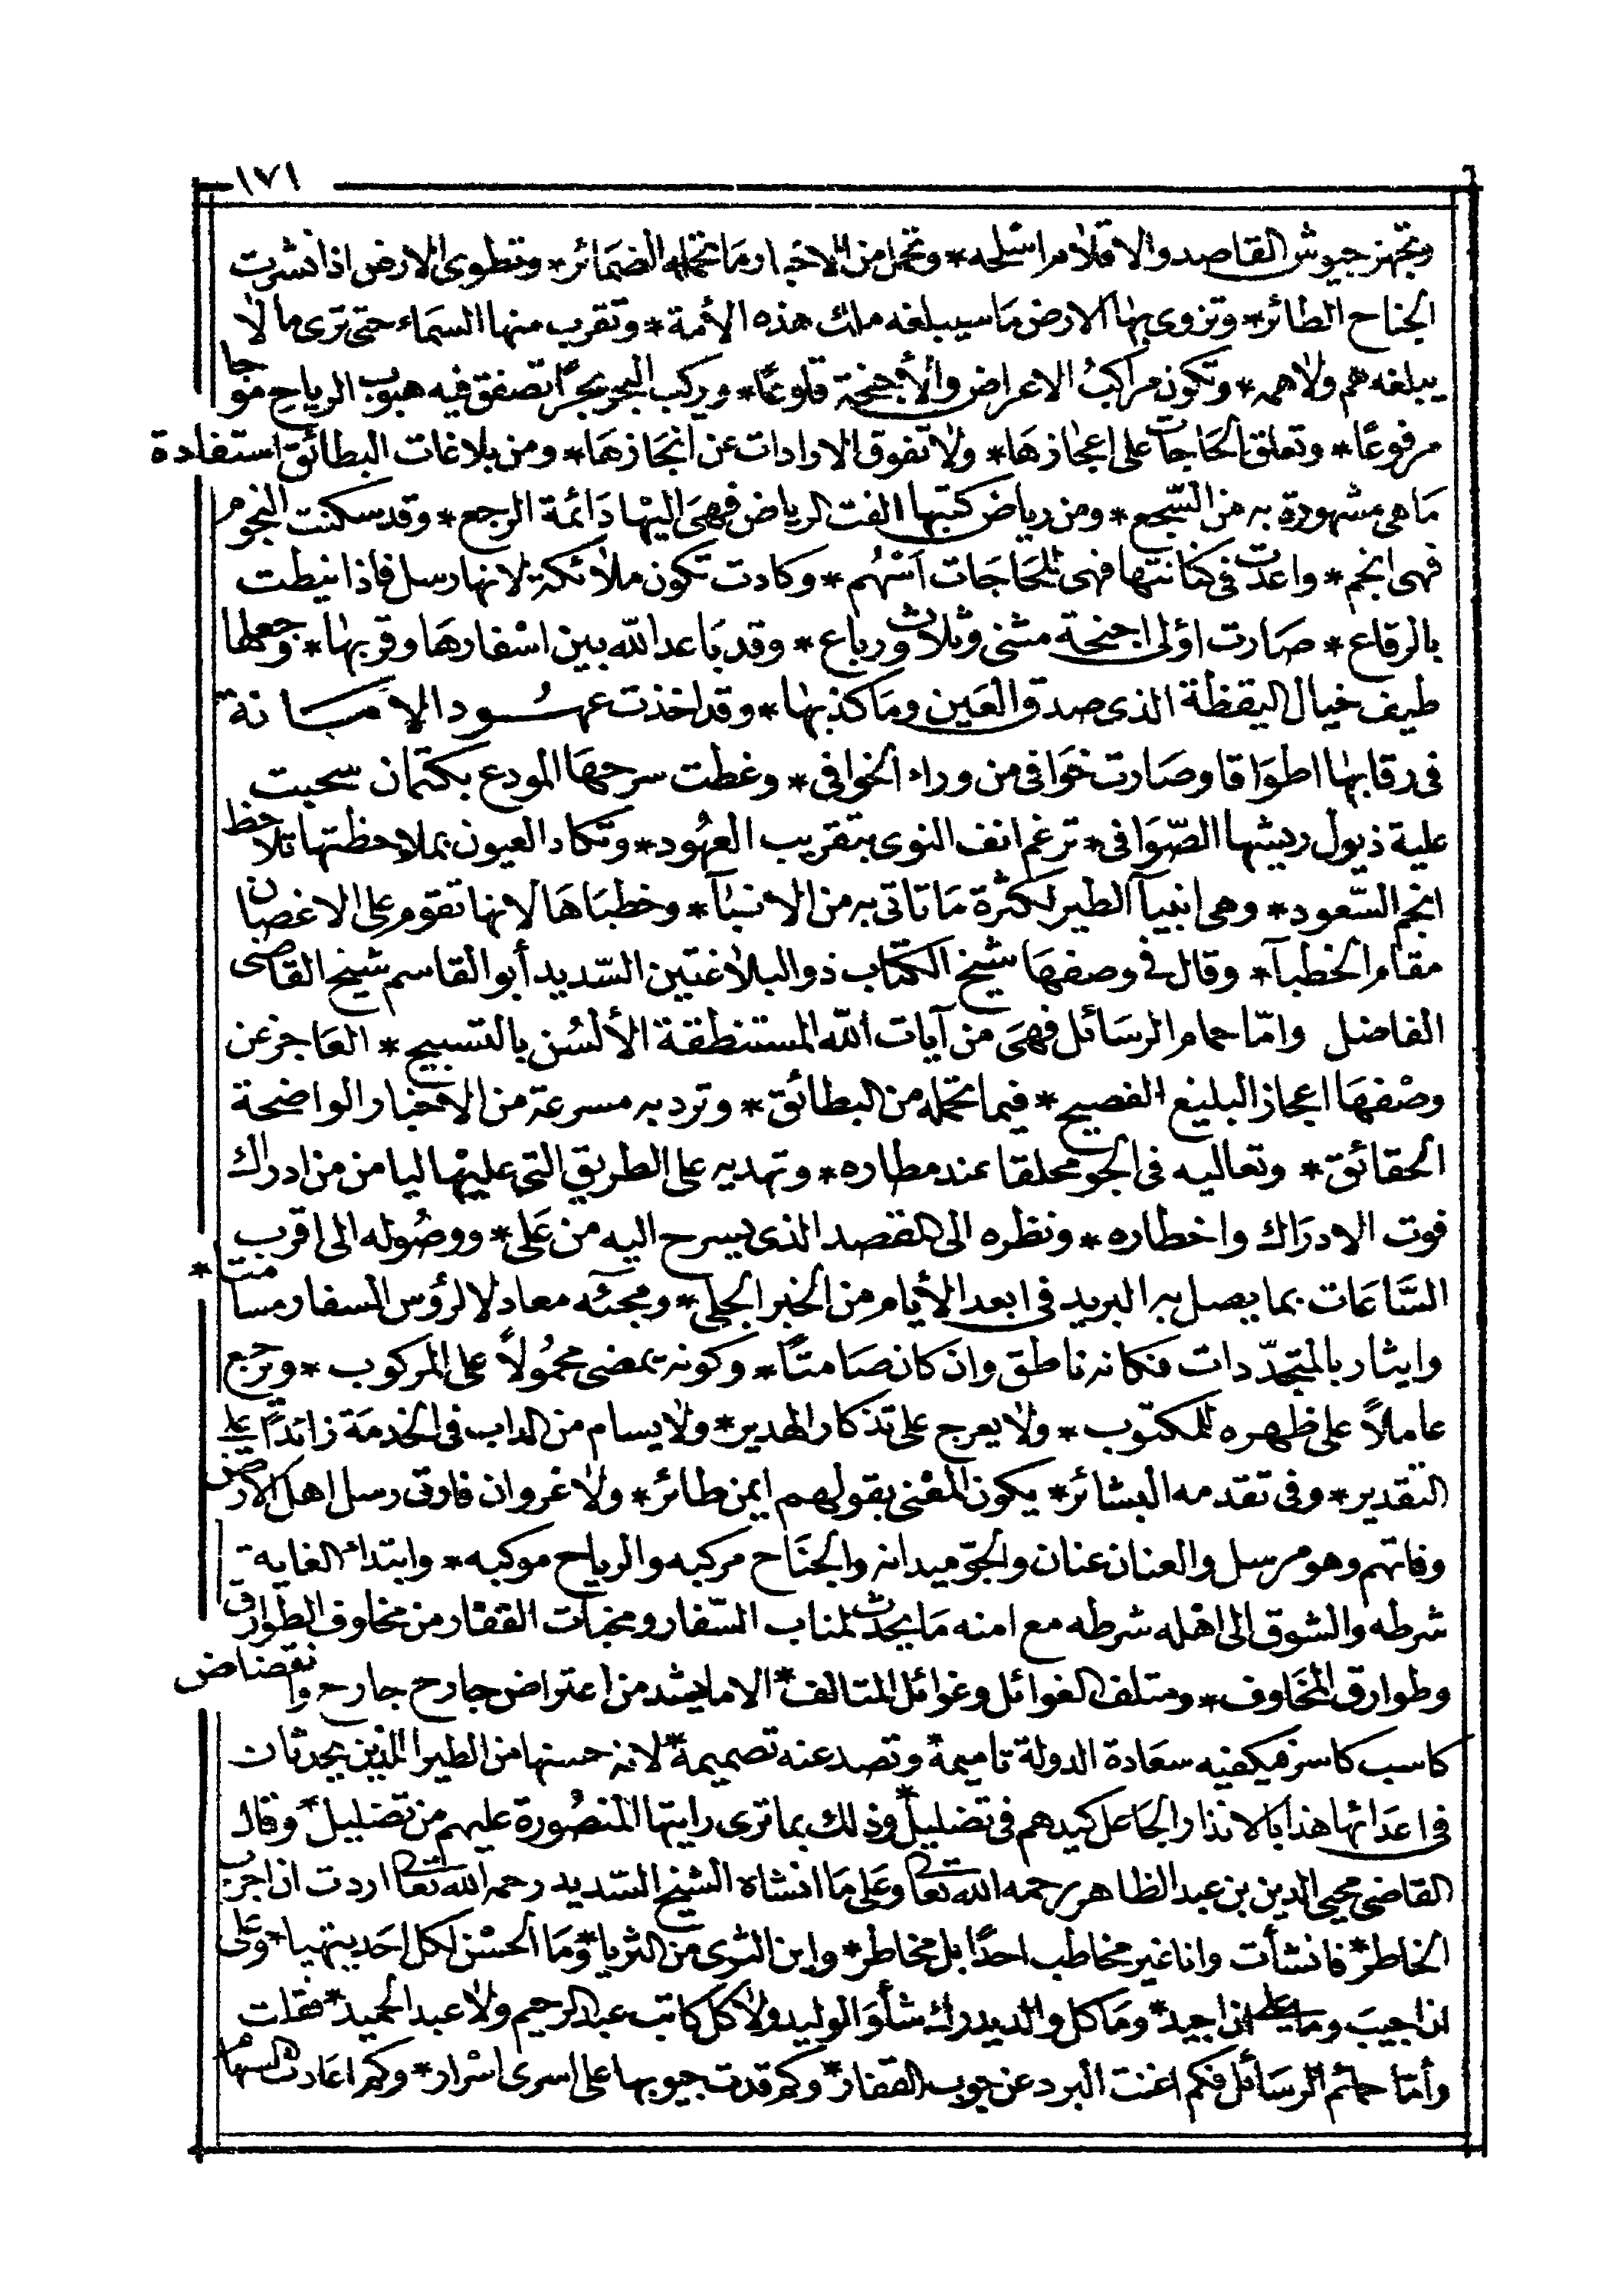 ١٧١
وتجهز جيوش القاصد والاقلام اسلحه * وتحمل من الاخبار ما تحمله الضمائر * وتطوى الارض اذا نشرت
الجناح الطائر * وتزوى بها الارض ما سيبلغه ملك هذه الأمة * وتقرب منها السماء حتى ترى ما لا
يبلغه هم ولا همه * وتكون مراكبُ الاعراض والأجنحة قلوعًا * ويركب البحر بحرًا تصفق فيه هبوب الرياح موجا
مرفوعًا * وتعلق الحاجات على اعجازها * ولا تفوق الارادات عن انجازها * ومن بلاغات البطائق استفادة
ما هى مشهورة به من السّجع * ومن رياض كتبها الفت الرياض فهى اليها دائمة الرجع * وقد سكنت النجوم
فهى انجم * واعدت فى كنانتها فهى للحاجات اسْهُم * وكادت تكون ملائكة لانها رسل فاذا نيطت
بالرقاع * صارت اولى اجنحة مثنى وثلاث ورباع * وقد باعد الله بين اسفارها وقربها * وجعلها
طيف خيال اليقظة الذى صدق العين وما كذبها * وقد اخذت عهود الامانة
فى رقابها اطواقا وصارت خوافى من وراء الخوافى * وغطت سرحها المودع بكتمان سحبت
علية ذيول ريشها الصّوافى * ترغم انف النوى بتقريب العهُود * وتكاد العيون بملاحظتها تلاحظ
انجم السّعود * وهى انبيآ الطير لكثرة ما تاتى به من الانبآ * وخطباها لانها تقوم على الاغصان
مقام الخطبآ * وقال فى وصفها شيخ الكتّاب ذو البلاغتين السّديد أبو القاسم شيخ القاضى
الفاضل وامّا حمام الرسائل فهىَ من آيات الله المستنطقة الألسُن بالتسبيح * العاجز عن
وصْفها اعجاز البليغ الفصيح * فيما تحمله من البطائق * وترد به مسرعة من الاخبار الواضحة
الحقائق * وتعاليه فى الجو محلقا عند مطاره * وتهديه على الطريق التى عليها ليامن من ادراك
فوت الادراك واخطاره * ونظره الى المقصد الذى يسرح اليه من عَلى * ووصُوله الى اقرب
السَّاعات بما يصل به البريد فى ابعد الأيام من الخبر الجلى * ومجئه معادلا لرؤس السفار مسامتا *
وايثار بالمتجدّدات فكانه ناطق وان كان صامتًا * وكونه يمضى محمُولاً على المركوب * وترجع
عاملاً على ظهره للمكتوب * ولا يعرج على تذكار الهدير * ولا يسام من الداب فى الخدمة زائدًا على
التقدير * وفى تقدمه البشائر * يكون المعْنى بقولهم ايمن طائر * ولا غروان فارق رسل اهل الارض
وفاتهم وهو مرسل والعنان عنان والجوّ ميدانه والجناح مركبه والرياح موكبه * وابتداء الغاية
شرطه والشوق الى اهْله شرطه مع امنه ما يحدث لمناب السّفار ومخبآت القفار من مخاوف الطوارق
وطوارق المخاوف * ومتلف الغوائل وغوائل المتالف * الا ما يشد من اعتراض جارح جارح وانقضاض
كاسب كاسر فيكفيه سعادة الدولة تاميمة * وتصد عنه تصميمة * لانه حسنها من الطير الذين يحدثان
فى اعدائها هذا بالانذار الجاعل كيدهم فى تضليل * وذلك بما ترى رايتها المنصُورة عليهم من تضليل * وقال
القاضى محيى الدين بن عبد الظاهر رحمه الله تعا وعلى ما انشاه الشيخ السّديد رحمه الله تعا اردت ان اجرب
الخاطر * فانشأت وانا غير مخاطب احدًا بل مخاطر * واين الثرى من الثريا * وما الحسْن لكل احد يتهيا * وعلى
ان اجيبَ وما على ان اجيد * وما كل والد يدرك شأو الوليد ولا كل كاتب عبد الرحيم ولا عبد الحميد * فقلت
وأمّا حمائم الرسائل فكم اغنت البرد عن جوب القفار * وكم قدت جيوبها على اسرى اسْرار * وكم اعادت السهام